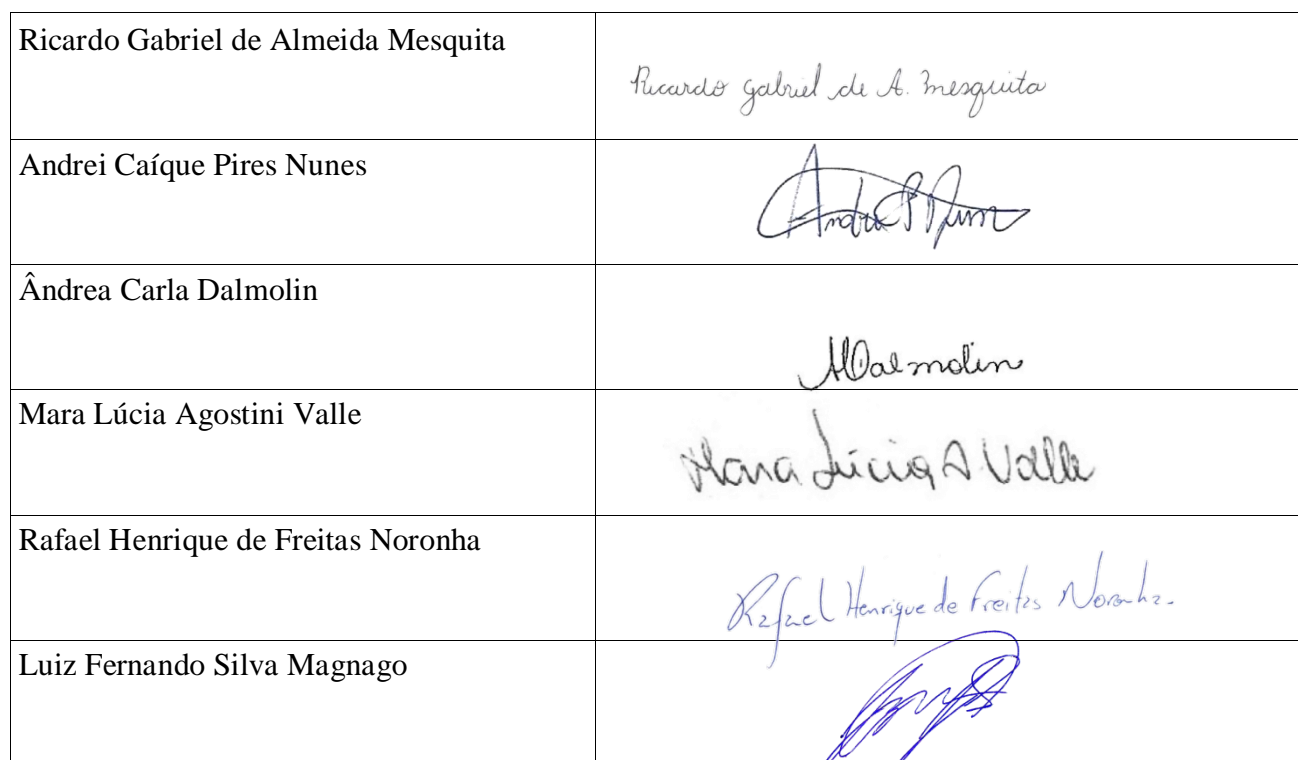 Ricardo Gabriel de Almeida Mesquita
Ricardo Gabriel de A. Mesquita
Andrei Caíque Pires Nunes
Ândrea Carla Dalmolin
Dalmolin
Mara Lúcia Agostini Valle
Mara Lúcia A Valle
Rafael Henrique de Freitas Noronha
Rafael Henrique de Freitas Noronha.
Luiz Fernando Silva Magnago